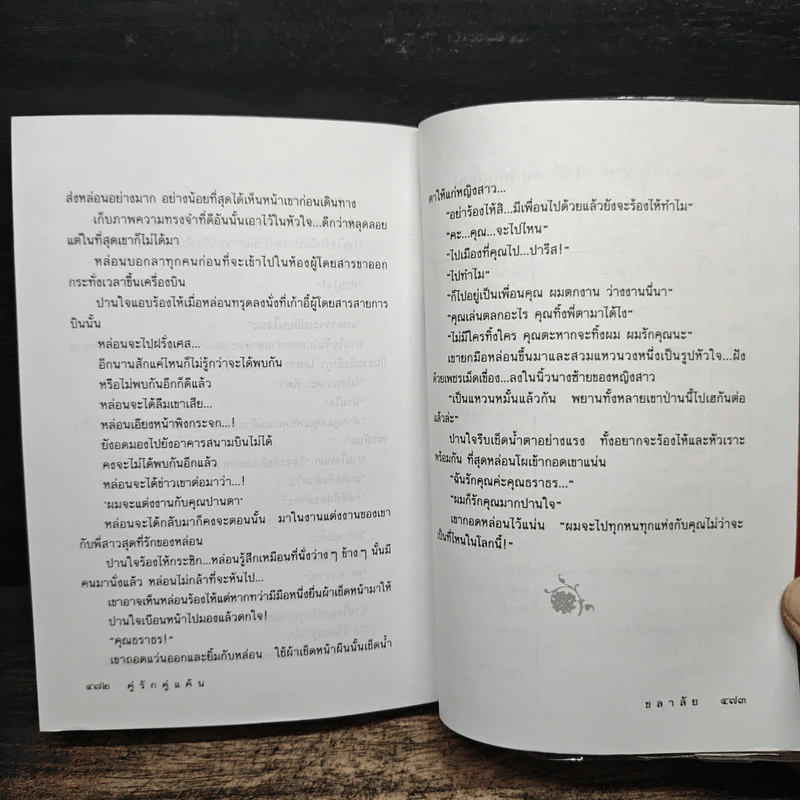 ส่งหล่อนอย่างมาก อย่างน้อยที่สุดได้เห็นหน้าเขาก่อนเดินทาง
เก็บภาพความทรงจำที่ดีอันนั้นเอาไว้ในหัวใจ...ดีกว่าหลุดลอย
แต่ในที่สุดเขาก็ไม่ได้มา
หล่อนบอกลาทุกคนก่อนที่จะเข้าไปในห้องผู้โดยสารขาออก
กระทั่งเวลาขึ้นเครื่องบิน
ปานใจแอบร้องไห้เมื่อหล่อนทรุดลงนั่งที่เก้าอี้ผู้โดยสารสายการ
บินนั้น
หล่อนจะไปฝรั่งเศส...
อีกนานสักแค่ไหนก็ไม่รู้กว่าจะได้พบกัน
หรือไม่พบกันอีกก็ดีแล้ว
หล่อนจะได้ลืมเขาเสีย...
หล่อนเอียงหน้าพิงกระจก...!
ยังอดมองไปยังอาคารสนามบินไม่ได้
คงจะไม่ได้พบกันอีกแล้ว
หล่อนจะได้ข่าวเขาต่อมาว่า...!
'ผมจะแต่งงานกับคุณปานตา'
หล่อนจะได้กลับมาก็คงจะตอนนั้น มาในงานแต่งงานของเขา
กับพี่สาวสุดที่รักของหล่อน
ปานใจร้องไห้กระซิก...หล่อนรู้สึกเหมือนที่นั่งว่างๆ ข้างๆ นั้นมี
คนมานั่งแล้ว หล่อนไม่กล้าที่จะหันไป...
เขาอาจเห็นหล่อนร้องไห้แต่หากทว่ามีมือหนึ่งยื่นผ้าเช็ดหน้ามาให้
ปานใจเบือนหน้าไปมองแล้วตกใจ!
"คุณธราธร!"
เขาถอดแว่นออกและยิ้มกับหล่อน ใช้ผ้าเช็ดหน้าผืนนั้นเช็ดน้ำ
๔๗๒ คู่รักคู่แค้น
ตาให้แก่หญิงสาว...
"อย่าร้องไห้สิ...มีเพื่อนไปด้วยแล้วยังจะร้องไห้ทำไม"
"คะ...คุณ...จะไปไหน"
"ไปเมืองที่คุณไป...ปารีส!"
"ไปทำไม"
"ก็ไปอยู่เป็นเพื่อนคุณ ผมตกงาน ว่างงานนี่นา"
"คุณเล่นตลกอะไร คุณทิ้งพี่ตามาได้ไง"
"ไม่มีใครทิ้งใคร คุณตะหากจะทิ้งผม ผมรักคุณนะ"
เขายกมือหล่อนขึ้นมาและสวมแหวนวงหนึ่งเป็นรูปหัวใจ...ฝัง
ด้วยเพชรเม็ดเขื่อง...ลงในนิ้วนางซ้ายของหญิงสาว
"เป็นแหวนหมั้นแล้วกัน พยานทั้งหลายเขาป่านนี้ไปเฮกันต่อ
แล้วล่ะ"
ปานใจรีบเช็ดน้ำตาอย่างแรง ทั้งอยากจะร้องไห้และหัวเราะ
พร้อมกัน ที่สุดหล่อนโผเข้ากอดเขาแน่น
"ฉันรักคุณค่ะคุณธราธร..."
"ผมก็รักคุณมากปานใจ"
เขากอดหล่อนไว้แน่น "ผมจะไปทุกหนทุกแห่งกับคุณไม่ว่าจะ
เป็นที่ไหนในโลกนี้!"
ชลาลัย ๔๗๓